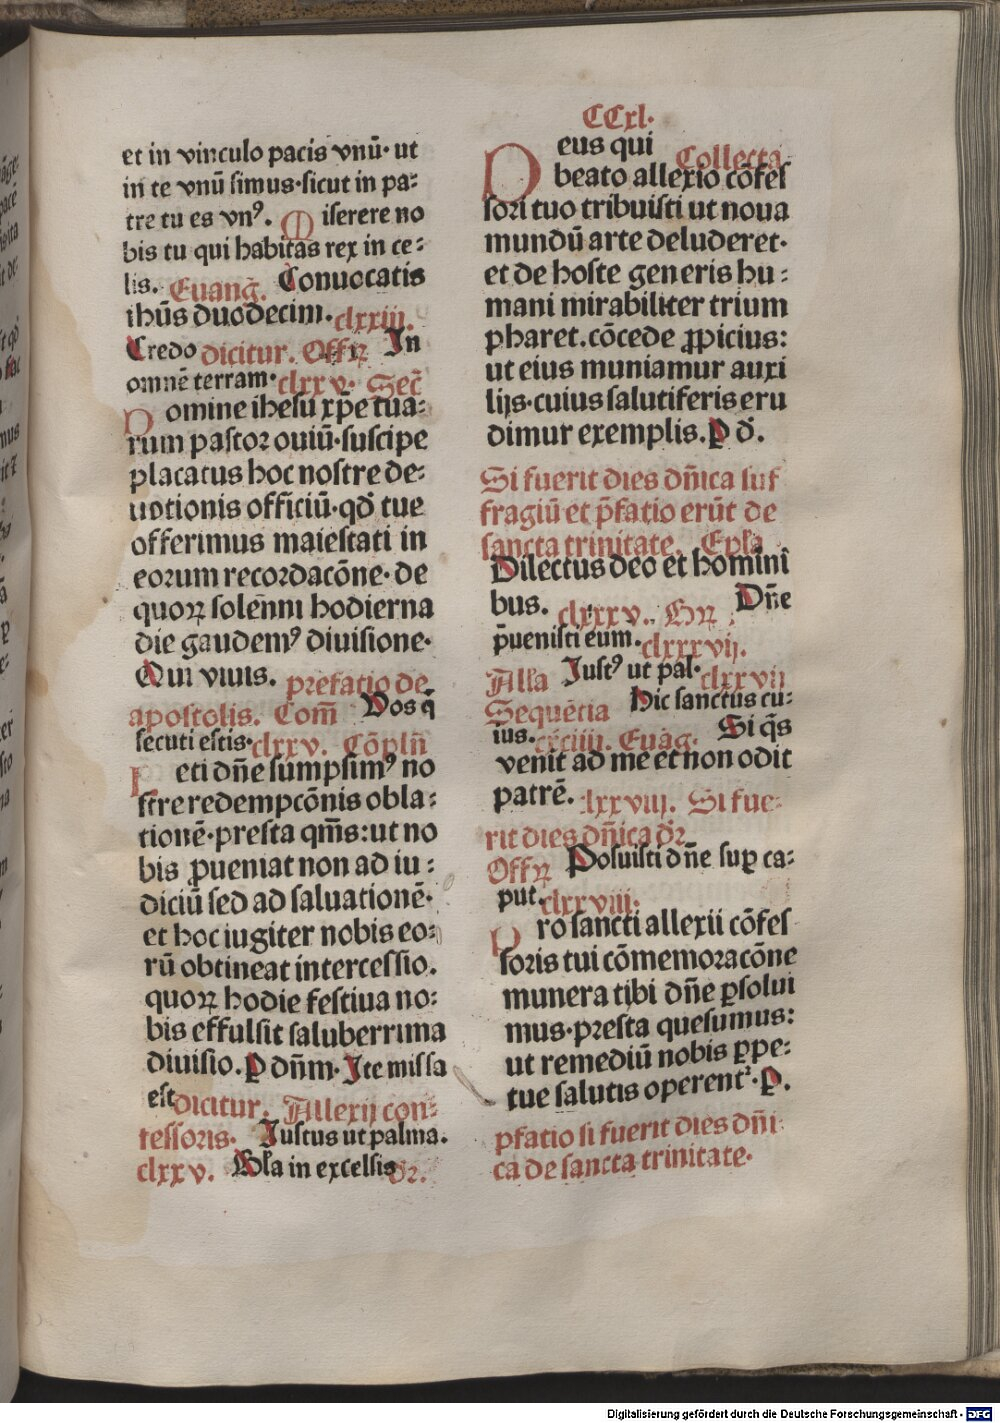 CCxl.
et in vinculo pacis vnū· ut
in te vnū simus·sicut in pa:
tre tu es vnꝰ. Miserere no
bis tu qui habitas rex in ce:
lis. Euang̃. Conuocatis
ihūs duodecim. clxxiii.
Credo dicitur. Offꝝ In
omnē terram· clxxv. Sec̄
Domine ihesu xp̄e tua:
rum pastoꝛ ouiū·suscipe
placatus hoc nostre de:
uotionis officiū·qđ tue
offerimus maiestati in
eorum recoꝛdacōne· de
quoꝝ solēnni hodierna
die gaudemꝰ diuisione·
Qui viuis. prefatio de
apostolis. Com̄ Vos q̄
secuti estis· clxxv. Cōpln̄
Leti dn̄e sumpsimꝰ no
stre redempcōnis obla:
tionē·presta qm̄s: ut no
bis ꝓueniat non ad iu:
diciū sed ad saluationē·
et hoc iugiter nobis eo:
rū obtineat intercessio.
quoꝝ hodie festiua no:
bis effulsit saluberrima
diuisio. P dn̄m. Ite missa
est dicitur. Allexii con:
fessoris. Iustus ut palma.
clxxv. Gla in excelsis dꝛ.
Deus qui Collecta
beato allexio cōfes
sori tuo tribuisti ut noua
mundū arte deluderet·
et de hoste generis hu:
mani mirabiliter trium
pharet. cōcede ꝓpicius:
ut eius muniamur auxi
liis·cuius salutiferis eru
dimur exemplis. P đ.
Si fuerit dies dn̄ica suf
fragiū et p̄fatio erūt de
sancta trinitate. Epl̄a
Dilectus deo et homini
bus. clxxxv. Gꝝ Dn̄e
p̄uenisti eum. clxxxvij.
Alla Iustꝰ ut pal. clxxvii
Sequētia Hic sanctus cu:
ius. cxciiii. Euāg. Si q̄s
venit ad me et non odit
patrē. lxxviij. Si fue:
rit dies dn̄ica dꝛ
Offꝝ Posuisti dn̄e suꝑ ca:
put. clxxviii.
Pro sancti allexii cōfes
soris tui cōmemoracōne
munera tibi dn̄e ꝑsolui
mus·presta quesumus:
ut remediū nobis ꝑpe:
tue salutis operent᷑. P.
p̄fatio si fuerit dies dn̄i:
ca de sancta trinitate.
Digitalisierung gefördert durch die Deutsche Forschungsgemeinschaft - DFG